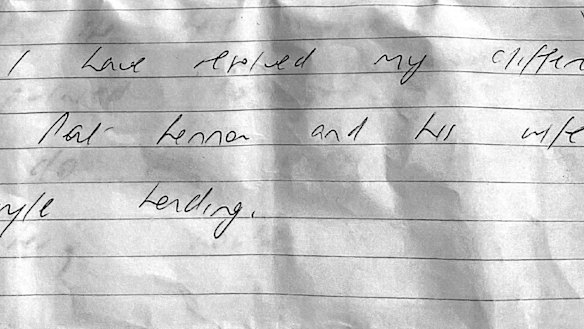 I have resolved my differen
Paul Lennon and his wife
nyle Harding.